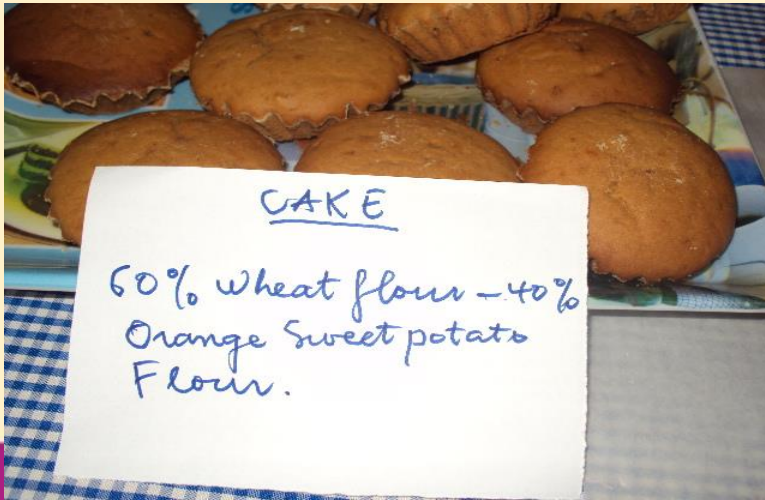 CAKE
60% wheat flour - 40%
Orange Sweet potato
Flour.